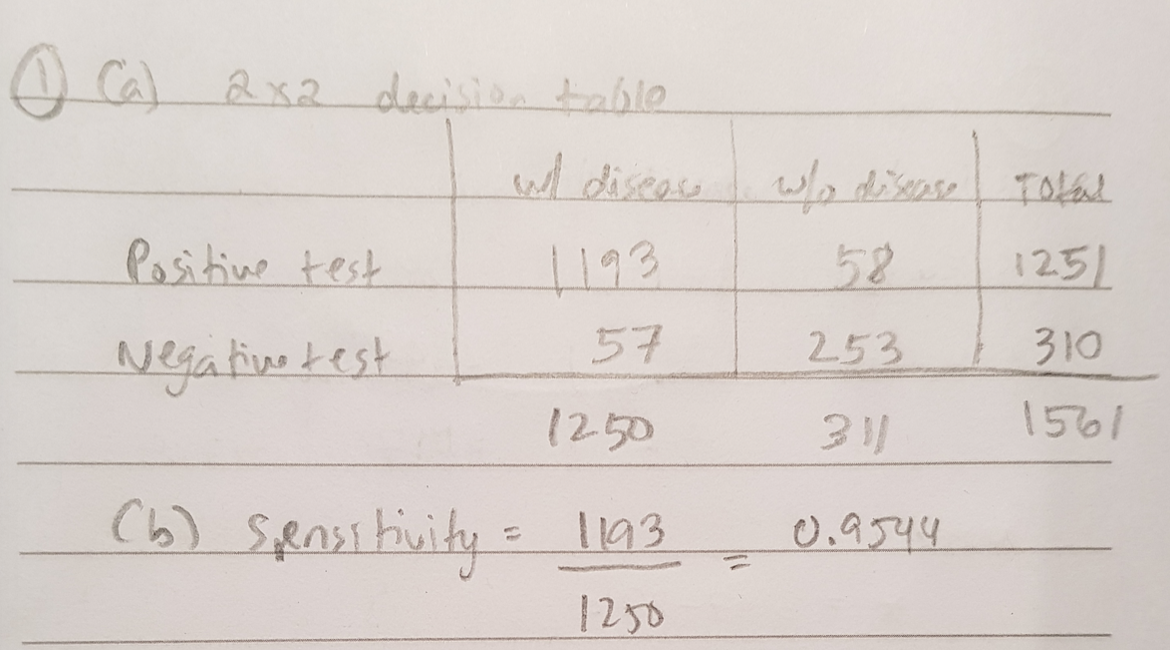 ① (a) 2x2 decision table
w/ disease w/o disease Total
Positive test 1193 58 1251
Negative test 57 253 310
1250 311 1561
(b) Sensitivity = 1193 = 0.9544
1250